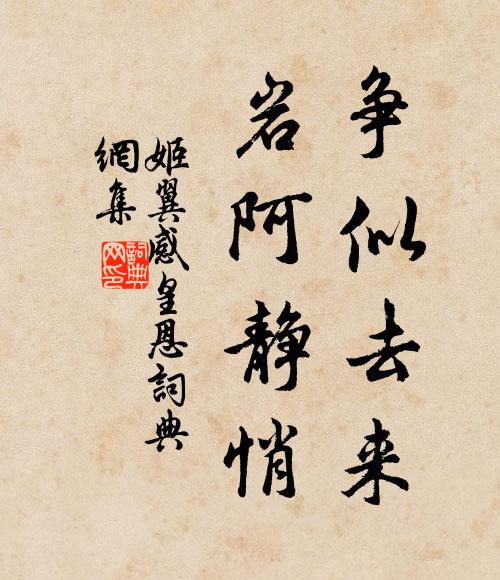 争似去来
岩阿静悄
姬翼感皇恩詞典
網集
詞典
网印